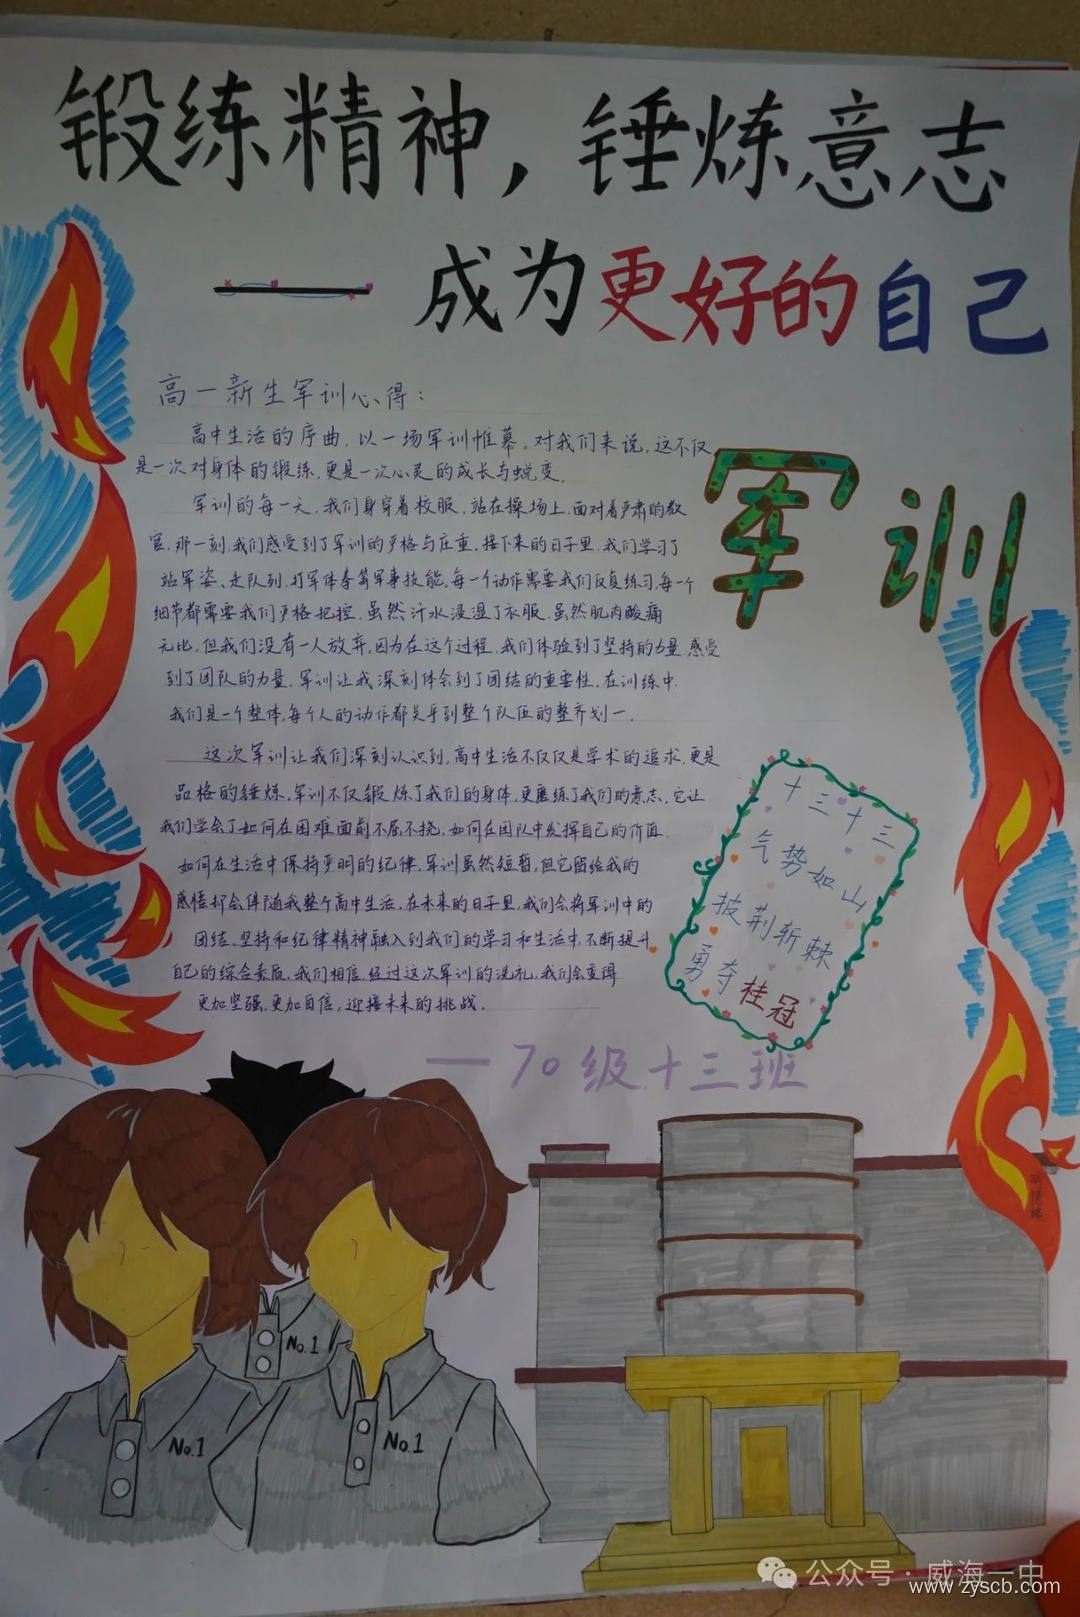 锻练精神，锤炼意志
—— 成为更好的自己
高一新生军训心得：
高中生活的序曲，以一场军训帷幕。对我们来说，这不仅
是一次对身体的锻练，更是一次心灵的成长与蜕变。
军训的每一天，我们身穿着校服，站在操场上，面对着严肃的教
官，那一刻，我们感受到了军训的严格与庄重，接下来的日子里，我们学习了
站军姿、走队列、打军体拳等军事技能，每一个动作需要我们反复练习，每一个
细节都需要我们严格把控，虽然汗水浸湿了衣服，虽然肌肉酸痛
无比，但我们没有一人放弃，因为在这个过程，我们体验到了坚持的力量，感受
到了团队的力量，军训让我深刻体会到了团结的重要性，在训练中，
我们是一个整体，每个人的动作都关乎到整个队伍的整齐划一。
这次军训让我们深刻认识到，高中生活不仅仅是学术的追求，更是
品格的锤炼，军训不仅锻炼了我们的身体，更磨练了我们的意志，它让
我们学会了如何在困难面前不屈不挠，如何在团队中发挥自己的价值，
如何在生活中保持严明的纪律，军训虽然短暂，但它留给我的
感悟却会伴随我整个高中生活，在未来的日子里，我们会将军训中的
团结、坚持和纪律精神融入到我们的学习和生活中，不断提升
自己的综合素质，我们相信，经过这次军训的洗礼，我们会变得
更加坚强，更加自信，迎接未来的挑战。
—70级十三班
军训
十三十三
气势如山
披荆斩棘
勇夺桂冠
No.1
No.1
No.1
公众号·威海一中
www.zyscb.com